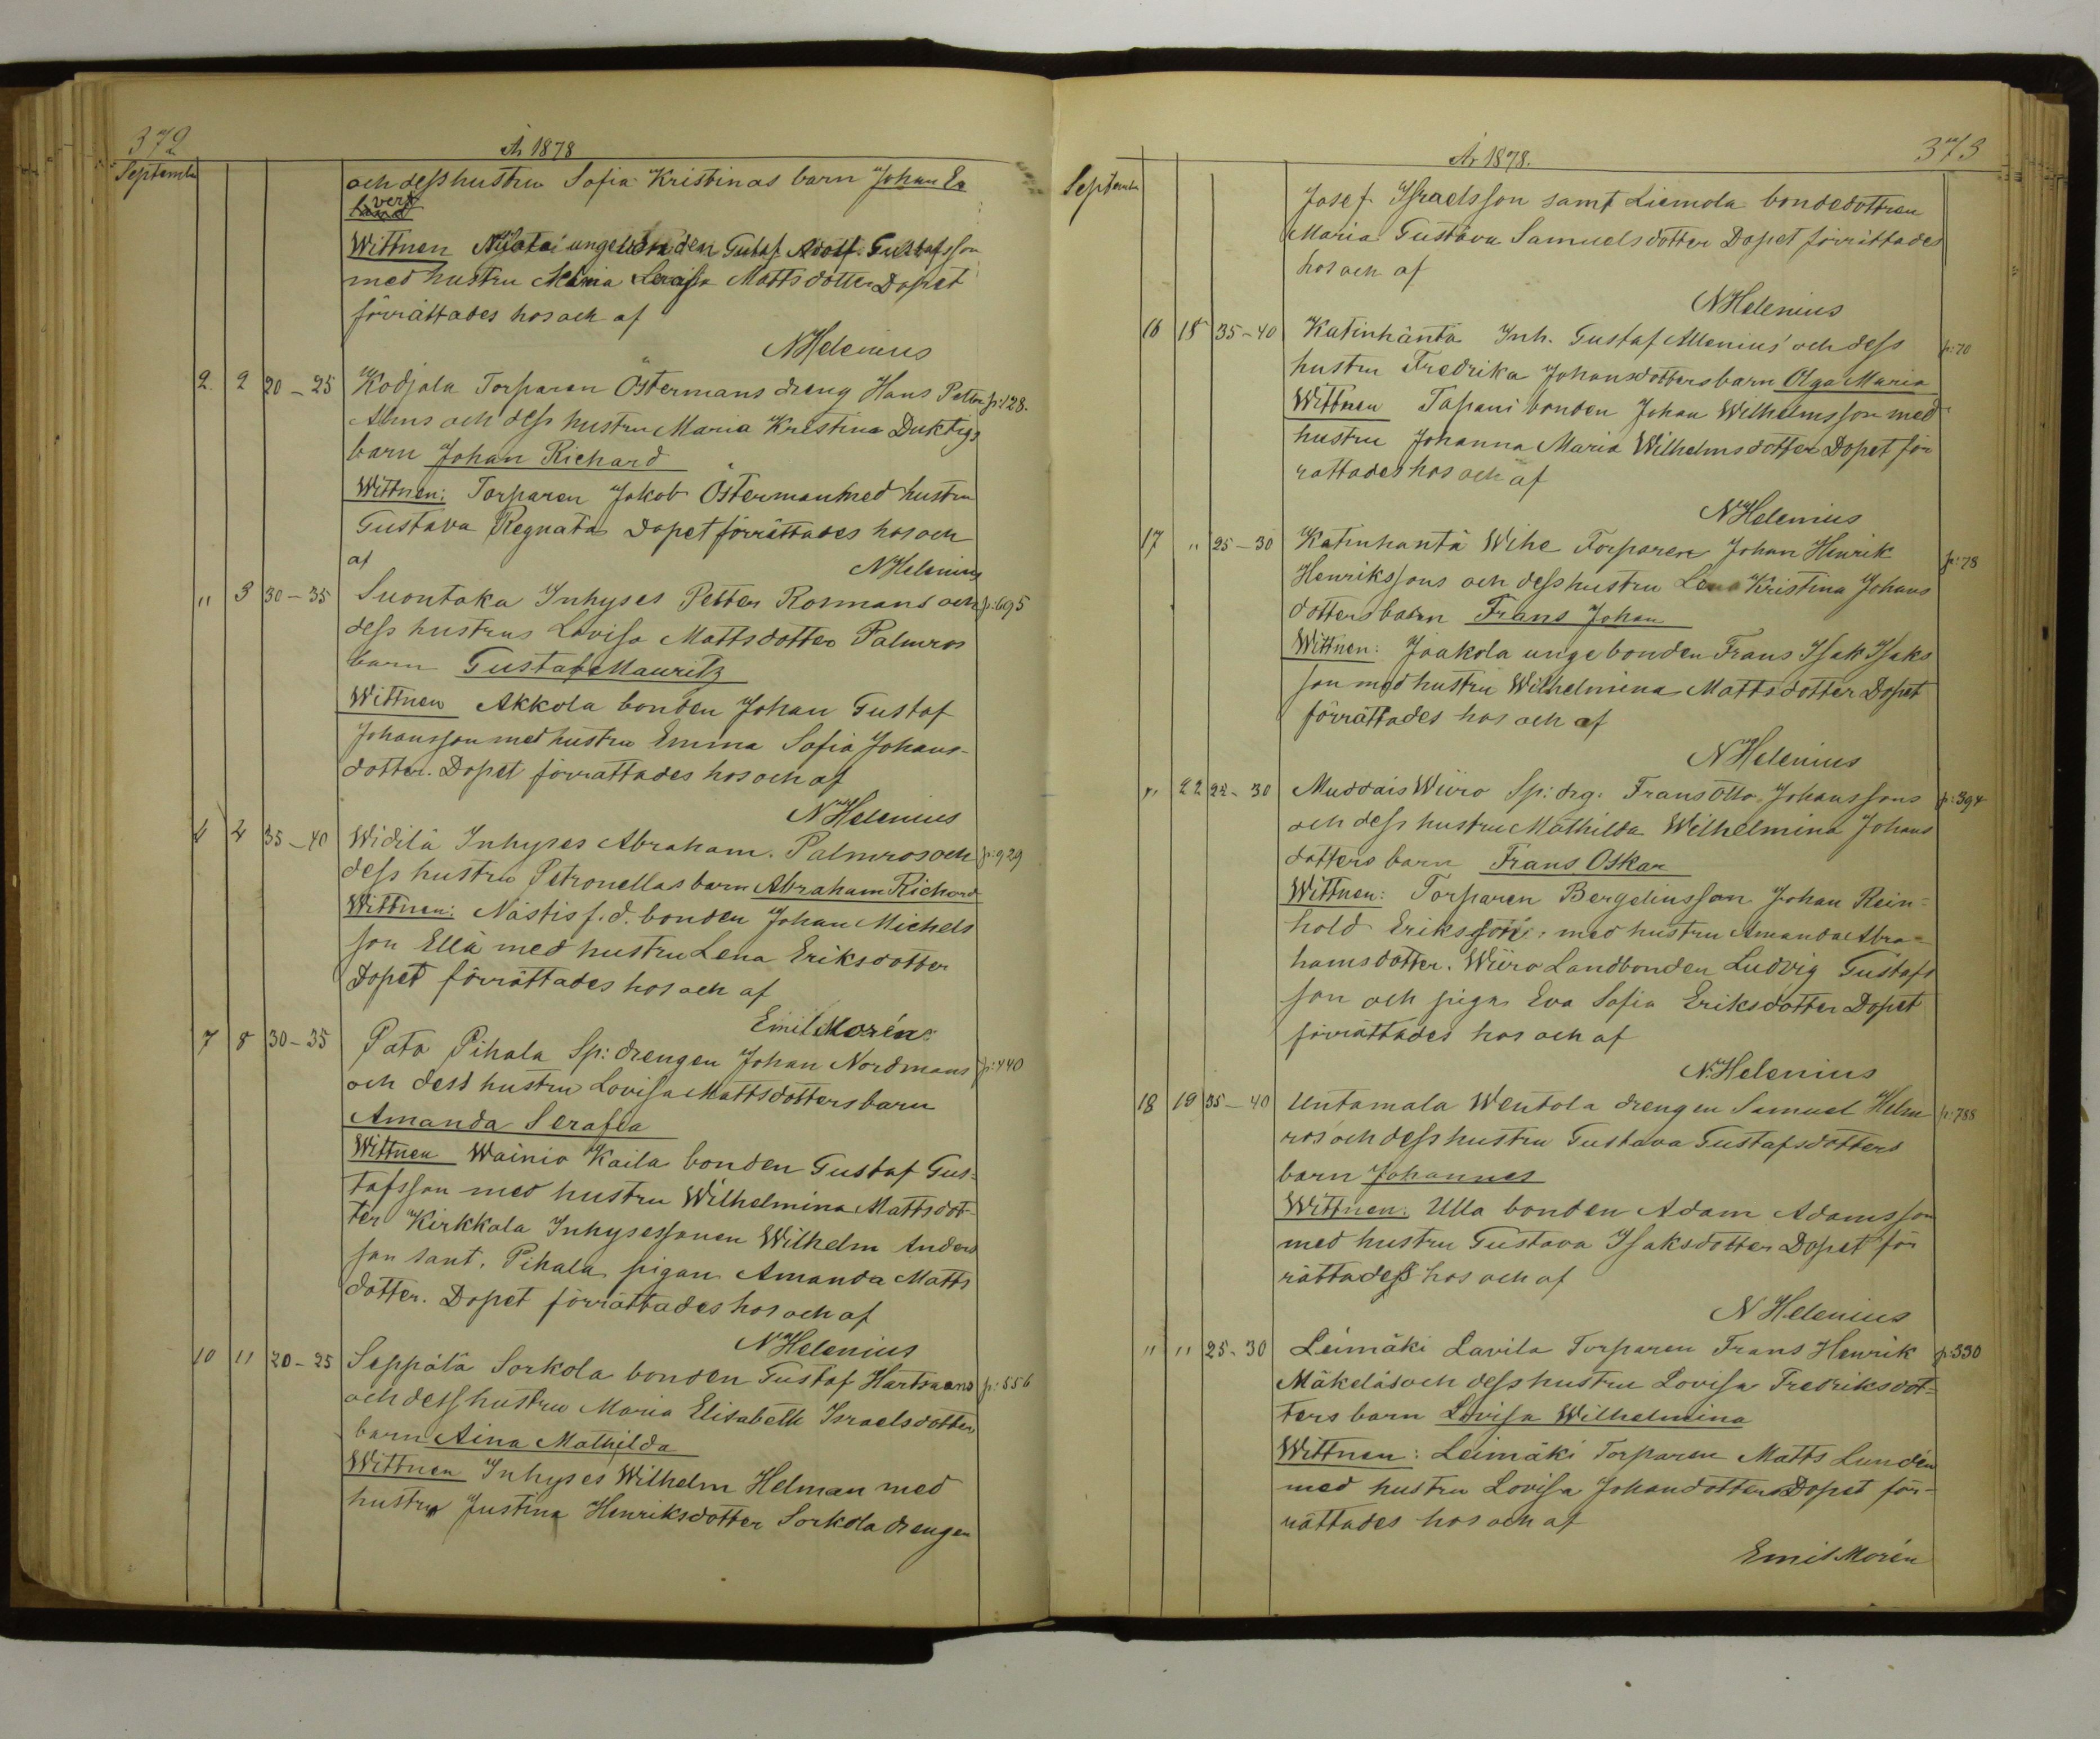 372
År 1878
September
och dess hustru Sofia Kristinas barn Johan Ev
vert
Wittnen unge bonden Gustaf Adolf Gustafsson
med hustru Maria Lovisa Mattsdotter Dopet
förrättades hos och af
N Helenius
2 2 20-25 Kodjala Torparen Östermans dreng Hans Petter p: 128.
Alms och dess hustru Maria Kristina Duktigs
barn Johan Richard
Wittnen: Torparen Jakob Österman med hustru
Gustava Regnata Dopet förrättades hos och
af
N Helenius
" 3 30-35 Suontaka Inhyses Petter Rosmans och p: 695
dess hustrus Lovisa Mattsdotter Palmros
barn Gustaf Mauritz
Wittnen Akkola bonden Johan Gustaf
Johansson med hustru Emma Sofia Johans-
dotter. Dopet förrättades hos och af
N Helenius
4 4 35-40 Widilä Inhyses Abraham Palmros och p: 929
dess hustru Petronellas barn Abraham Richard
Wittnen: Nästis f.d. bonden Johan Michels
son Ellä med hustru Lena Eriksdotter
Dopet förrättades hos och af
Emil Morén
7 8 30-35 Pato Pihala Sp: drengen Johan Nordmans p: 440
och dess hustru Lovisa Mattsdotters barn
Amanda Serafia
Wittnen Wainio Kaila bonden Gustaf Gus-
tafsson med hustru Wilhelmina Mattsdot-
ter Kirkkala Inhysessonen Wilhelm Anders
son samt. Pihala pigan Amanda Matts
dotter. Dopet förrättades hos och af
N Helenius
10 11 20-25 Seppälä Sorkola bonden Gustaf Hartmans p: 556
och dess hustru Maria Elisabeth Israelsdotter
barn Aina Mathilda
Wittnen Inhyses Wilhelm Helman med
hustru Justina Henriksdotter Sorkola drengen
373
År 1878.
September
Josef Israelsson samt Liemola bondedottren
Maria Gustava Samuelsdotter Dopet förrättades
hos och af
N Helenius
16 18 35-40 Katinhäntä Inh. Gustaf Allenius' och dess p: 70
hustru Fredrika Johansdotters barn Olga Maria
Wittnen Tapani bonden Johan Wilhelmsson med
hustru Johanna Maria Wilhelmsdotter Dopet för
rättades hos och af
N Helenius
17 " 25-30 Katinhäntä Wihe Torparen Johan Henrik p: 78
Henrikssons och dess hustru Lena Kristina Johans
dotters barn Frans Johan
Wittnen: Jaakola unge bonden Frans Isak Isaks
son med hustru Wilhelmina Mattsdotter Dopet
förrättades hos och af
N Helenius
" 22 25-30 Muddais Wiiro Sp: drg. Frans Otto Johanssons p: 394
och dess hustru Mathilda Wilhelmina Johans
dotters barn Frans Oskar
Wittnen: Torparen Bergeliusson Johan Rein-
hold Eriksson med hustru Amanda Abra-
hamsdotter. Wiiro Landbonden Ludvig Gustafs
son och pigan Eva Sofia Eriksdotter Dopet
förrättades hos och af
N. Helenius
18 19 35-40 Untamala Wentola drengen Samuel Helm p: 788
ros' och dess hustru Gustava Gustafsdotters
barn Johannes
Wittnen: Ulla bonden Adam Adamsson
med hustru Gustava Isaksdotter Dopet för
rättades hos och af
N Helenius
" " 25-30 Leimäki Lavila Torparen Frans Henrik p: 330
Mäkeläs och dess hustru Lovisa Fredriksdot-
ters barn Lovisa Wilhelmina
Wittnen: Leimäki Torparen Matts Lundén
med hustru Lovisa Johansdotter Dopet för-
rättades hos och af
Emil Morén